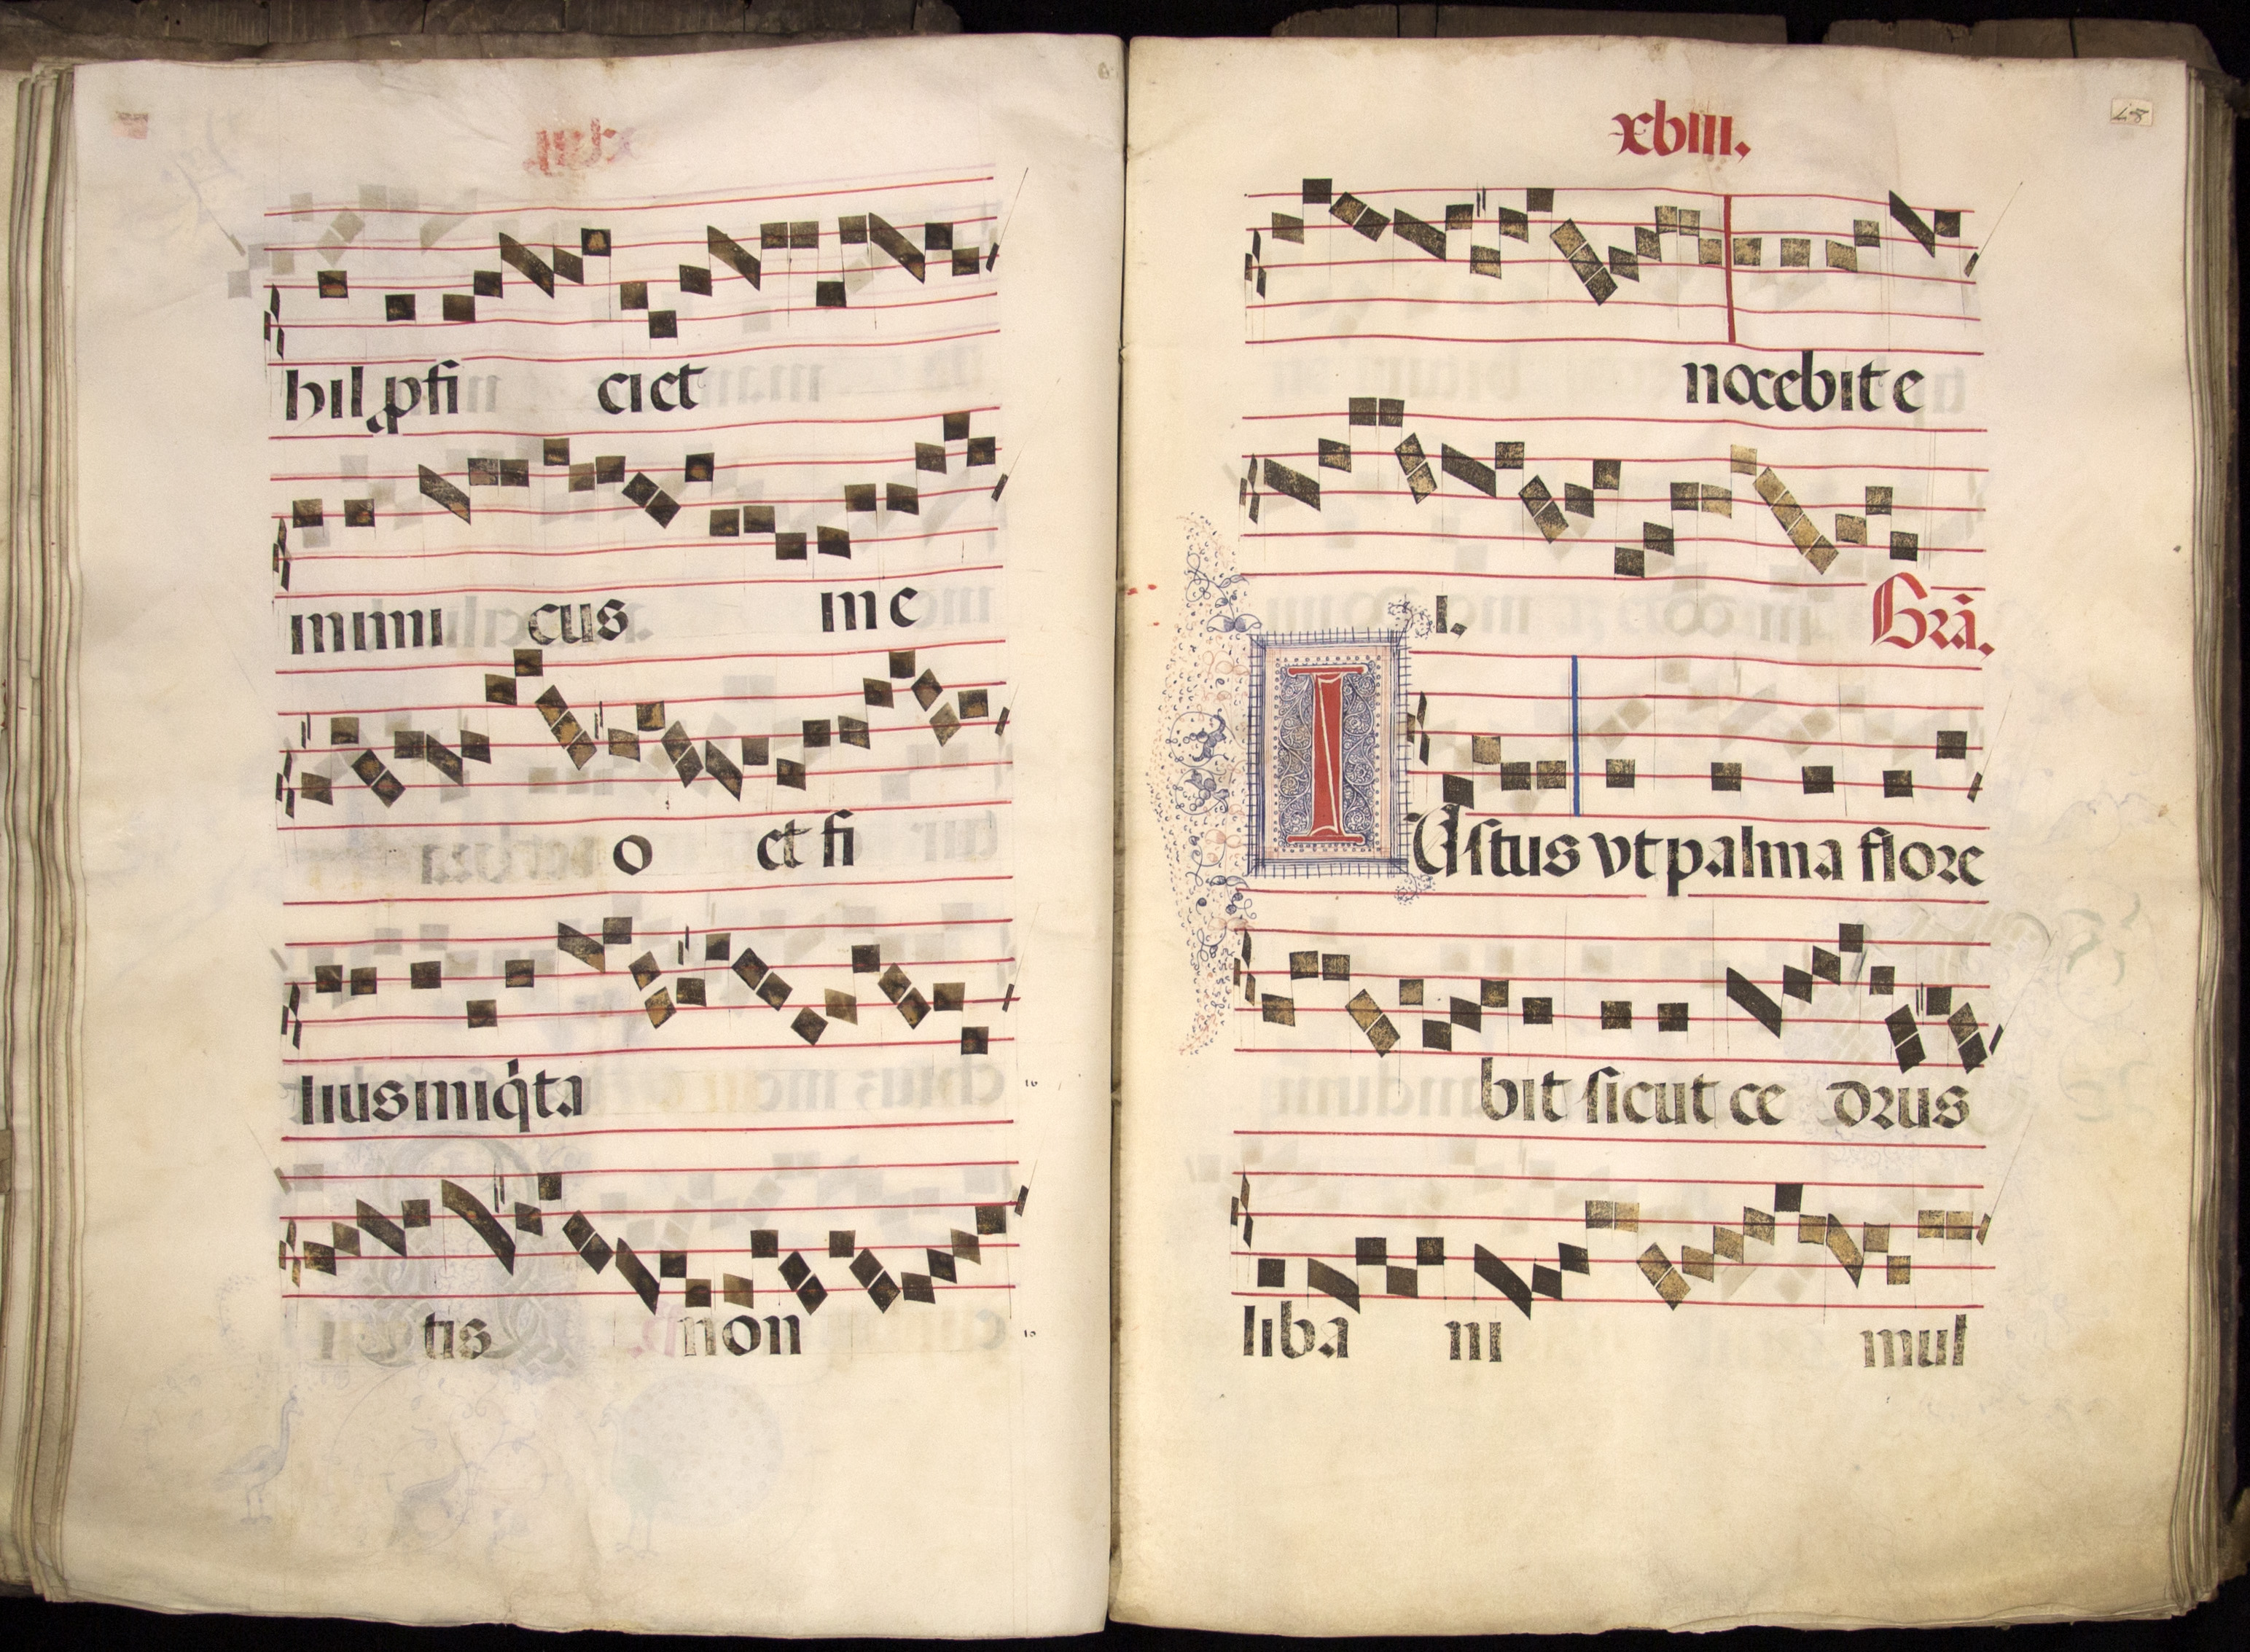 hil ꝓfi ciet
inimi cus in e
o et fi
lius iniq̇ta
tis non
xbiii.
nocebit e
i.
Graᷓ.
IUstus vt palma flore
bit sicut ce drus
liba ni mul